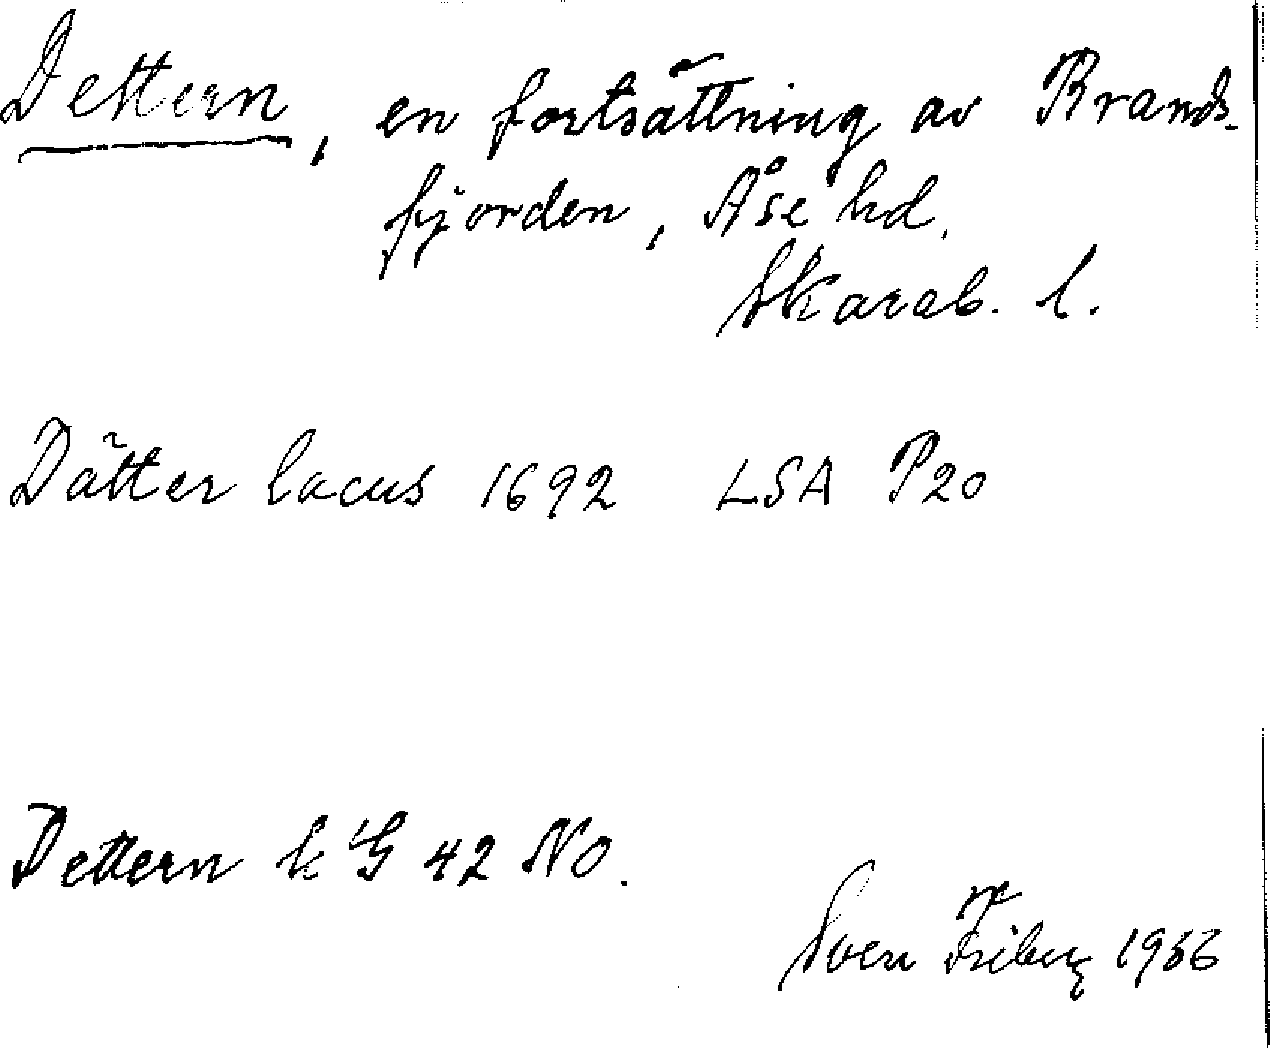 Dettern, en fortsättning av Brands-
fjorden, Åse hd.
Skarab. l.
Dätter lacus 1692 LSA P20
Dettern k G 42 NO.
Sven Friberg 1956